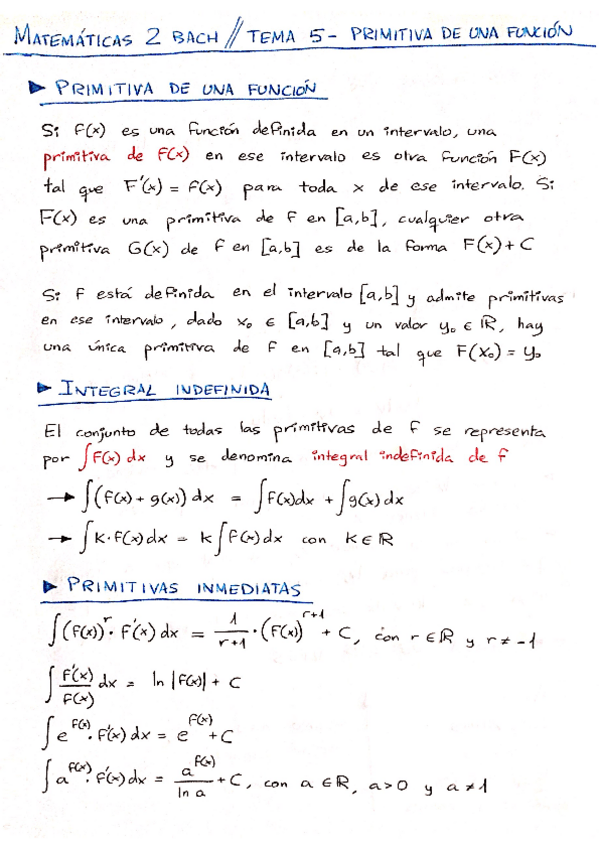 MATEMÁTICAS 2 BACH // TEMA 5 - PRIMITIVA DE UNA FUNCIÓN
► PRIMITIVA DE UNA FUNCIÓN
Si f(x) es una función definida en un intervalo, una
primitiva de f(x) en ese intervalo es otra función F(x)
tal que F'(x) = f(x) para toda x de ese intervalo. Si
F(x) es una primitiva de f en [a,b], cualquier otra
primitiva G(x) de f en [a,b] es de la forma F(x) + C
Si f está definida en el intervalo [a,b] y admite primitivas
en ese intervalo, dado x₀ ∈ [a,b] y un valor y₀ ∈ ℝ, hay
una única primitiva de f en [a,b] tal que F(x₀) = y₀
► INTEGRAL INDEFINIDA
El conjunto de todas las primitivas de f se representa
por ∫f(x) dx y se denomina integral indefinida de f
→ ∫(f(x) + g(x)) dx = ∫f(x)dx + ∫g(x) dx
→ ∫K·f(x) dx = k ∫f(x) dx con K ∈ ℝ
► PRIMITIVAS INMEDIATAS
∫(f(x))^r · f'(x) dx = 1/(r+1) · (f(x))^(r+1) + C, con r ∈ ℝ y r ≠ -1
∫ f'(x)/f(x) dx = ln |f(x)| + C
∫e^f(x) · f'(x) dx = e^f(x) + C
∫a^f(x) · f'(x) dx = a^f(x)/ln a + C, con a ∈ ℝ, a>0 y a ≠ 1